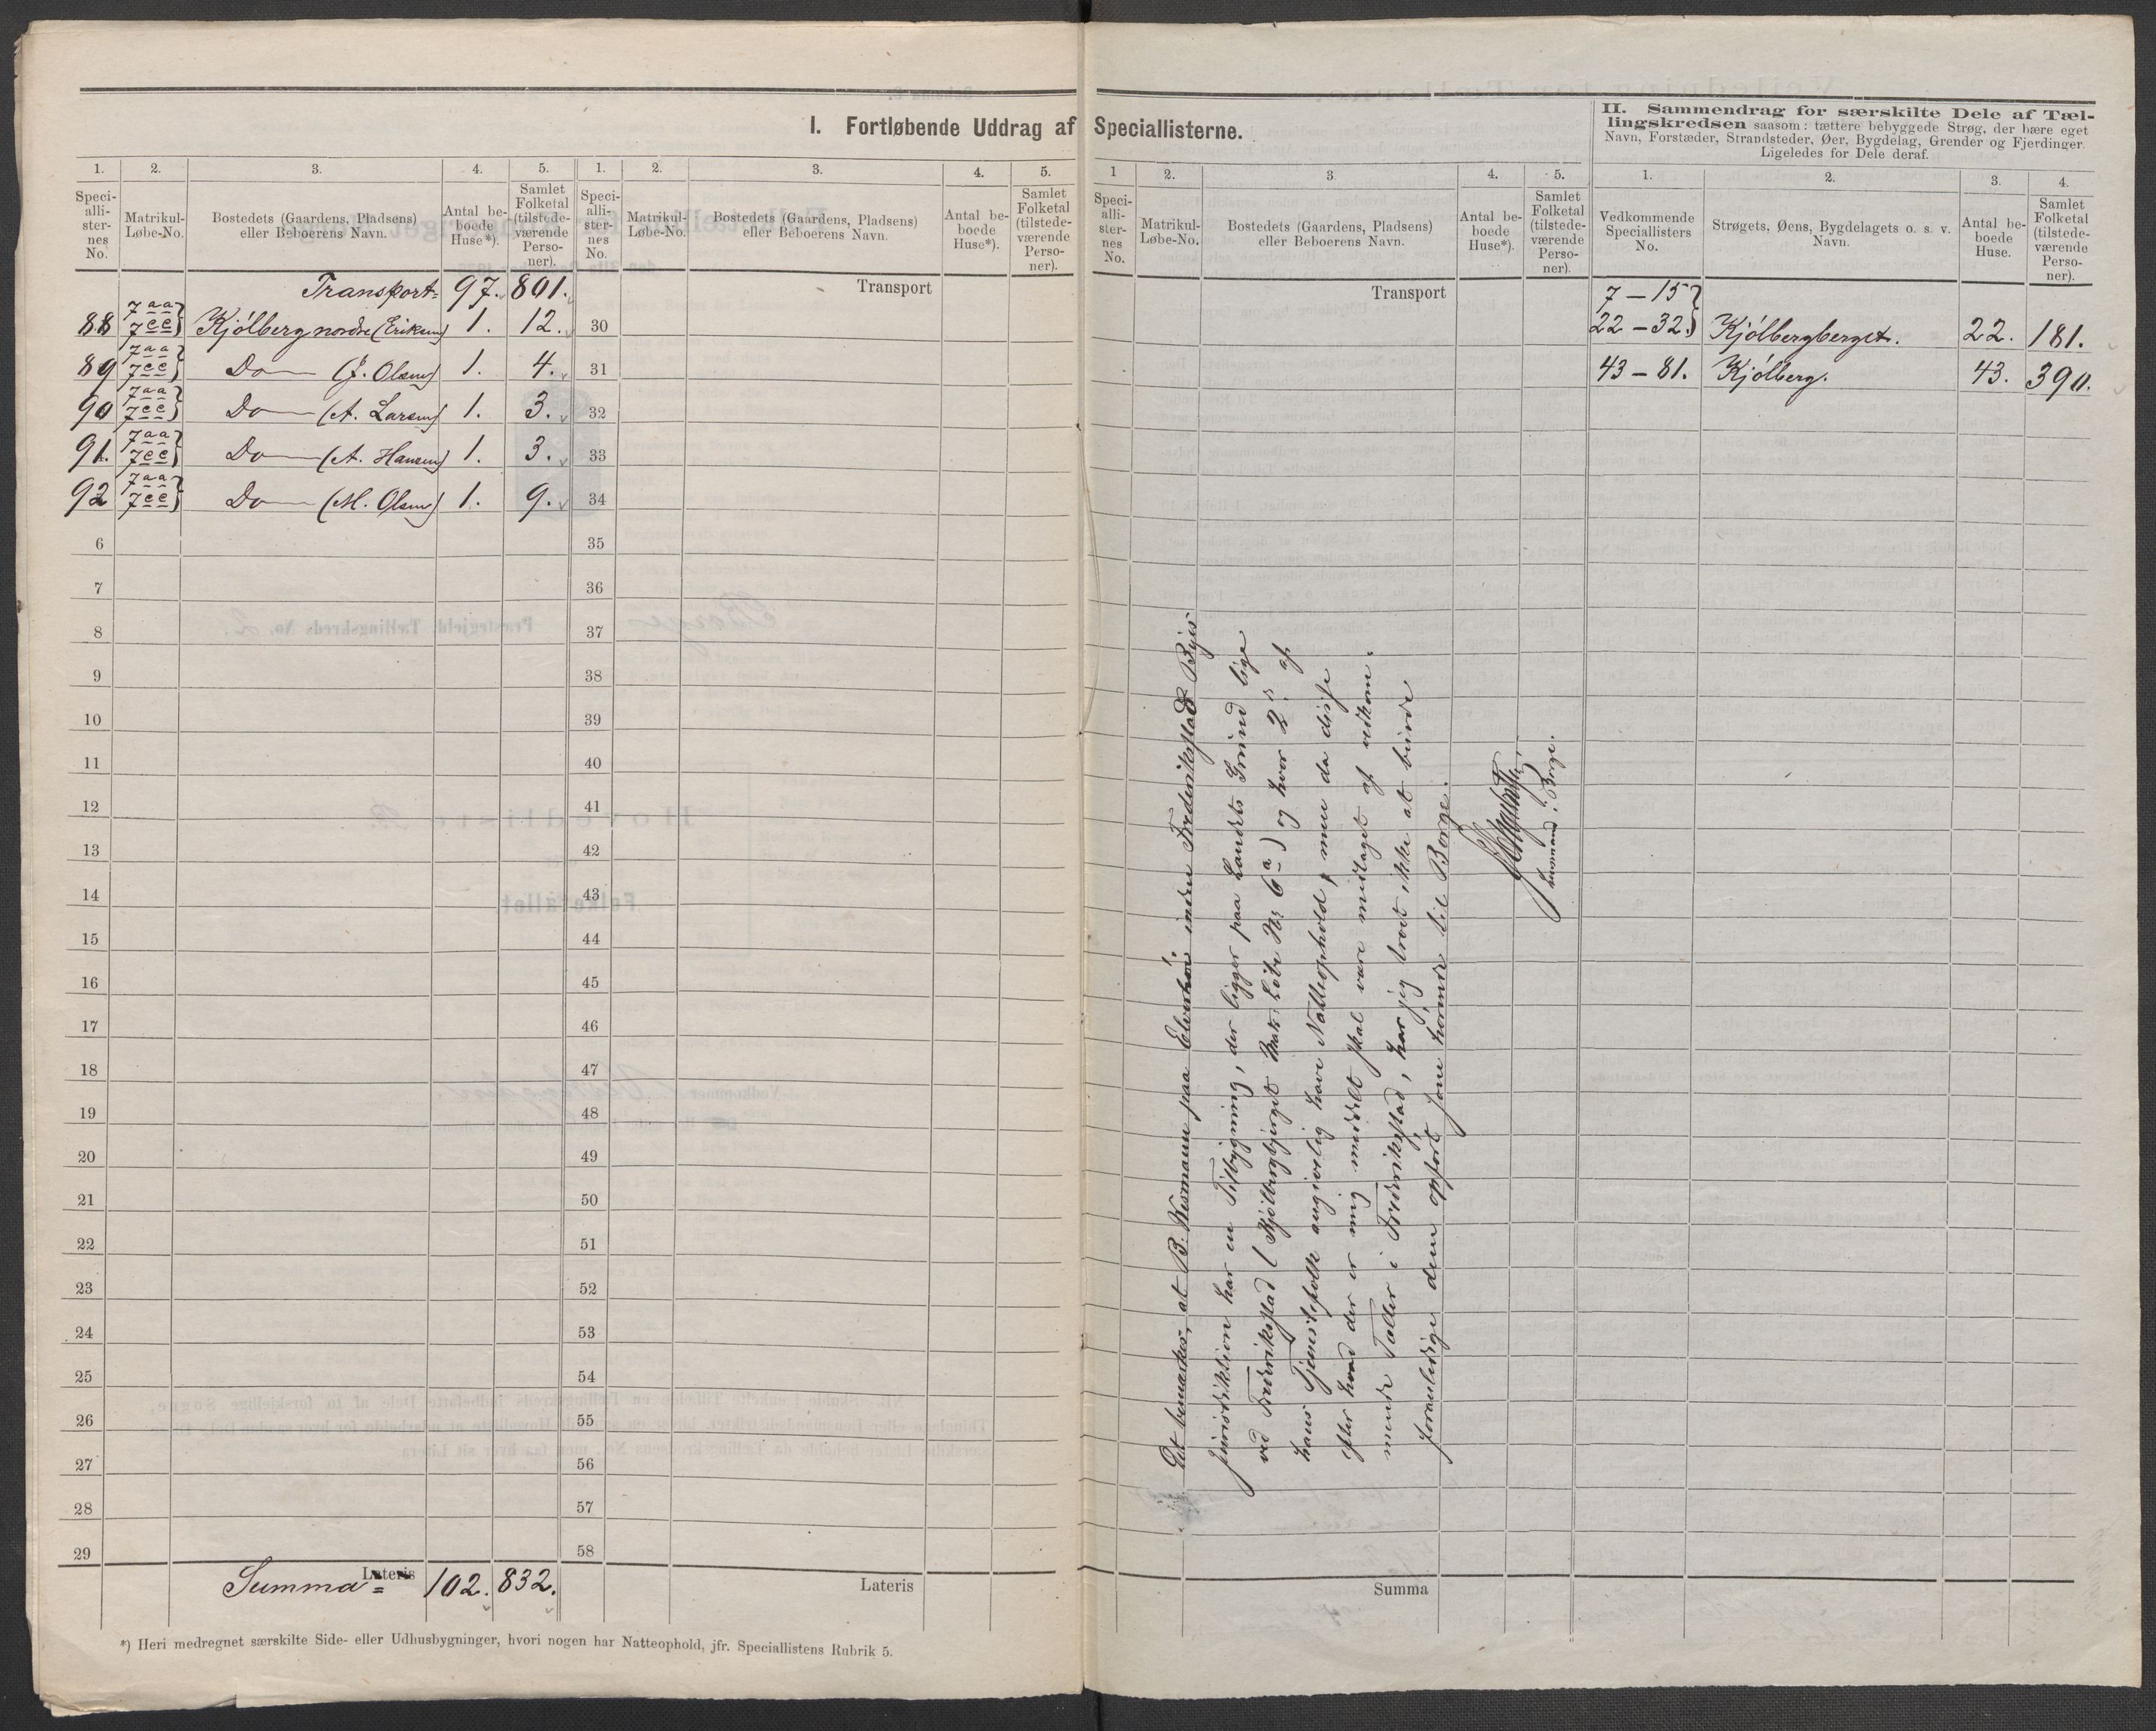 I. Fortløbende Uddrag af Speciallisterne.
II. Sammendrag for særskilte Dele af Tæl-
lingskredsen saasom: tættere bebyggede Strøg, der bære eget
Navn, Forstæder, Strandsteder, Øer, Bygdelag, Grender og Fjerdinger.
Ligeledes for Dele deraf.
1. 2. 3. 4. 5. 1. 2. 3. 4. 5.
Speci-
alli-
ster-
nes
No.
Matrikul-
Løbe-No.
Bostedets (Gaardens, Pladsens)
eller Beboerens Navn.
Antal be-
boede
Huse*).
Samlet
Folketal
(tilstede-
værende
Perso-
ner).
Speci-
alli-
ster-
nes
No.
Matrikul-
Løbe-No.
Bostedets (Gaardens, Pladsens)
eller Beboerens Navn.
Antal be-
boede
Huse*).
Samlet
Folketal
(tilstede-
værende
Perso-
ner).
Transport= 97. 801.
Transport
88 7aa 7ee} Kjölberg nordre (Eriksen) 1. 12. 30
89 7aa 7ee} Do — (J. Olsen) 1. 4. 31
90 7aa 7ee} Do — (A. Larsen) 1. 3. 32
91. 7aa 7ee} Do — (A. Hansen) 1. 3. 33
92 7aa 7ee} Do — (M. Olsen) 1. 9. 34
6 35
7 36
8 37
9 38
10 39
11 40
12 41
13 42
14 43
15 44
16 45
17 46
18 47
19 48
20 49
21 50
22 51
23 52
24 53
25 54
26 55
27 56
28 57
29 58
Lateris
Summa = 102. 832.
Lateris
*) Heri medregnet særskilte Side- eller Udhusbygninger, hvori nogen har Natteophold, jfr. Speciallistens Rubrik 5.
1 2. 3. 4. 5.
Speci-
alli-
ster-
nes
No.
Matrikul-
Løbe-No.
Bostedets (Gaardens, Pladsens)
eller Beboerens Navn.
Antal be-
boede
Huse*).
Samlet
Folketal
(tilstede-
værende
Perso-
ner).
Transport
Det bemærkes, at B. Wesmann paa inden Frederiksstads Byes
Jurisdiktion har en Tilbygning, der ligger paa Landets Grund lige
ved Frederiksstad (Kjölbergbjerget Mat. Löbe No 6a) og hvor 2de af
hans Tjenestefolk angivelig have Natteophold, men da disse
efter hvad der er mig meddelt skal være medtaget af vedkom-
mende Tæller i Frederiksstad, har jeg troet ikke at burde
foranledige dem opfört som hörende til Borge.
Lensmand i Borge.
Summa
1. 2. 3. 4.
Vedkommende
Speciallisters
No.
Strøgets, Øens, Bygdelagets o. s. v.
Navn.
Antal be-
boede
Huse.
Samlet
Folketal
(tilstede-
værende
Perso-
ner).
7 – 15}
22 – 32.} Kjölbergberget. 22. 181.
43 – 81. Kjölberg. 43. 390.